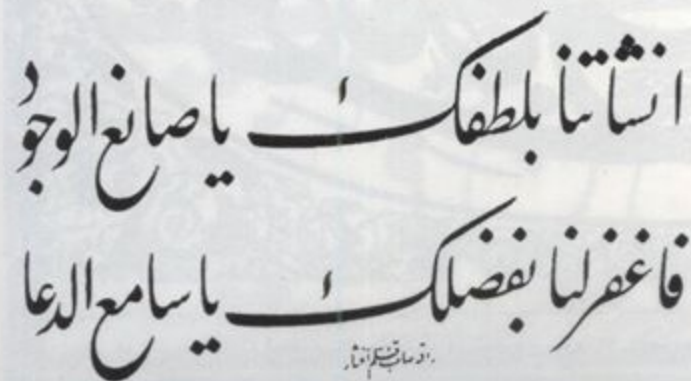 انشأتنا بلطفك یا صانع الوجود
فاغفر لنا بفضلك یا سامع الدعا